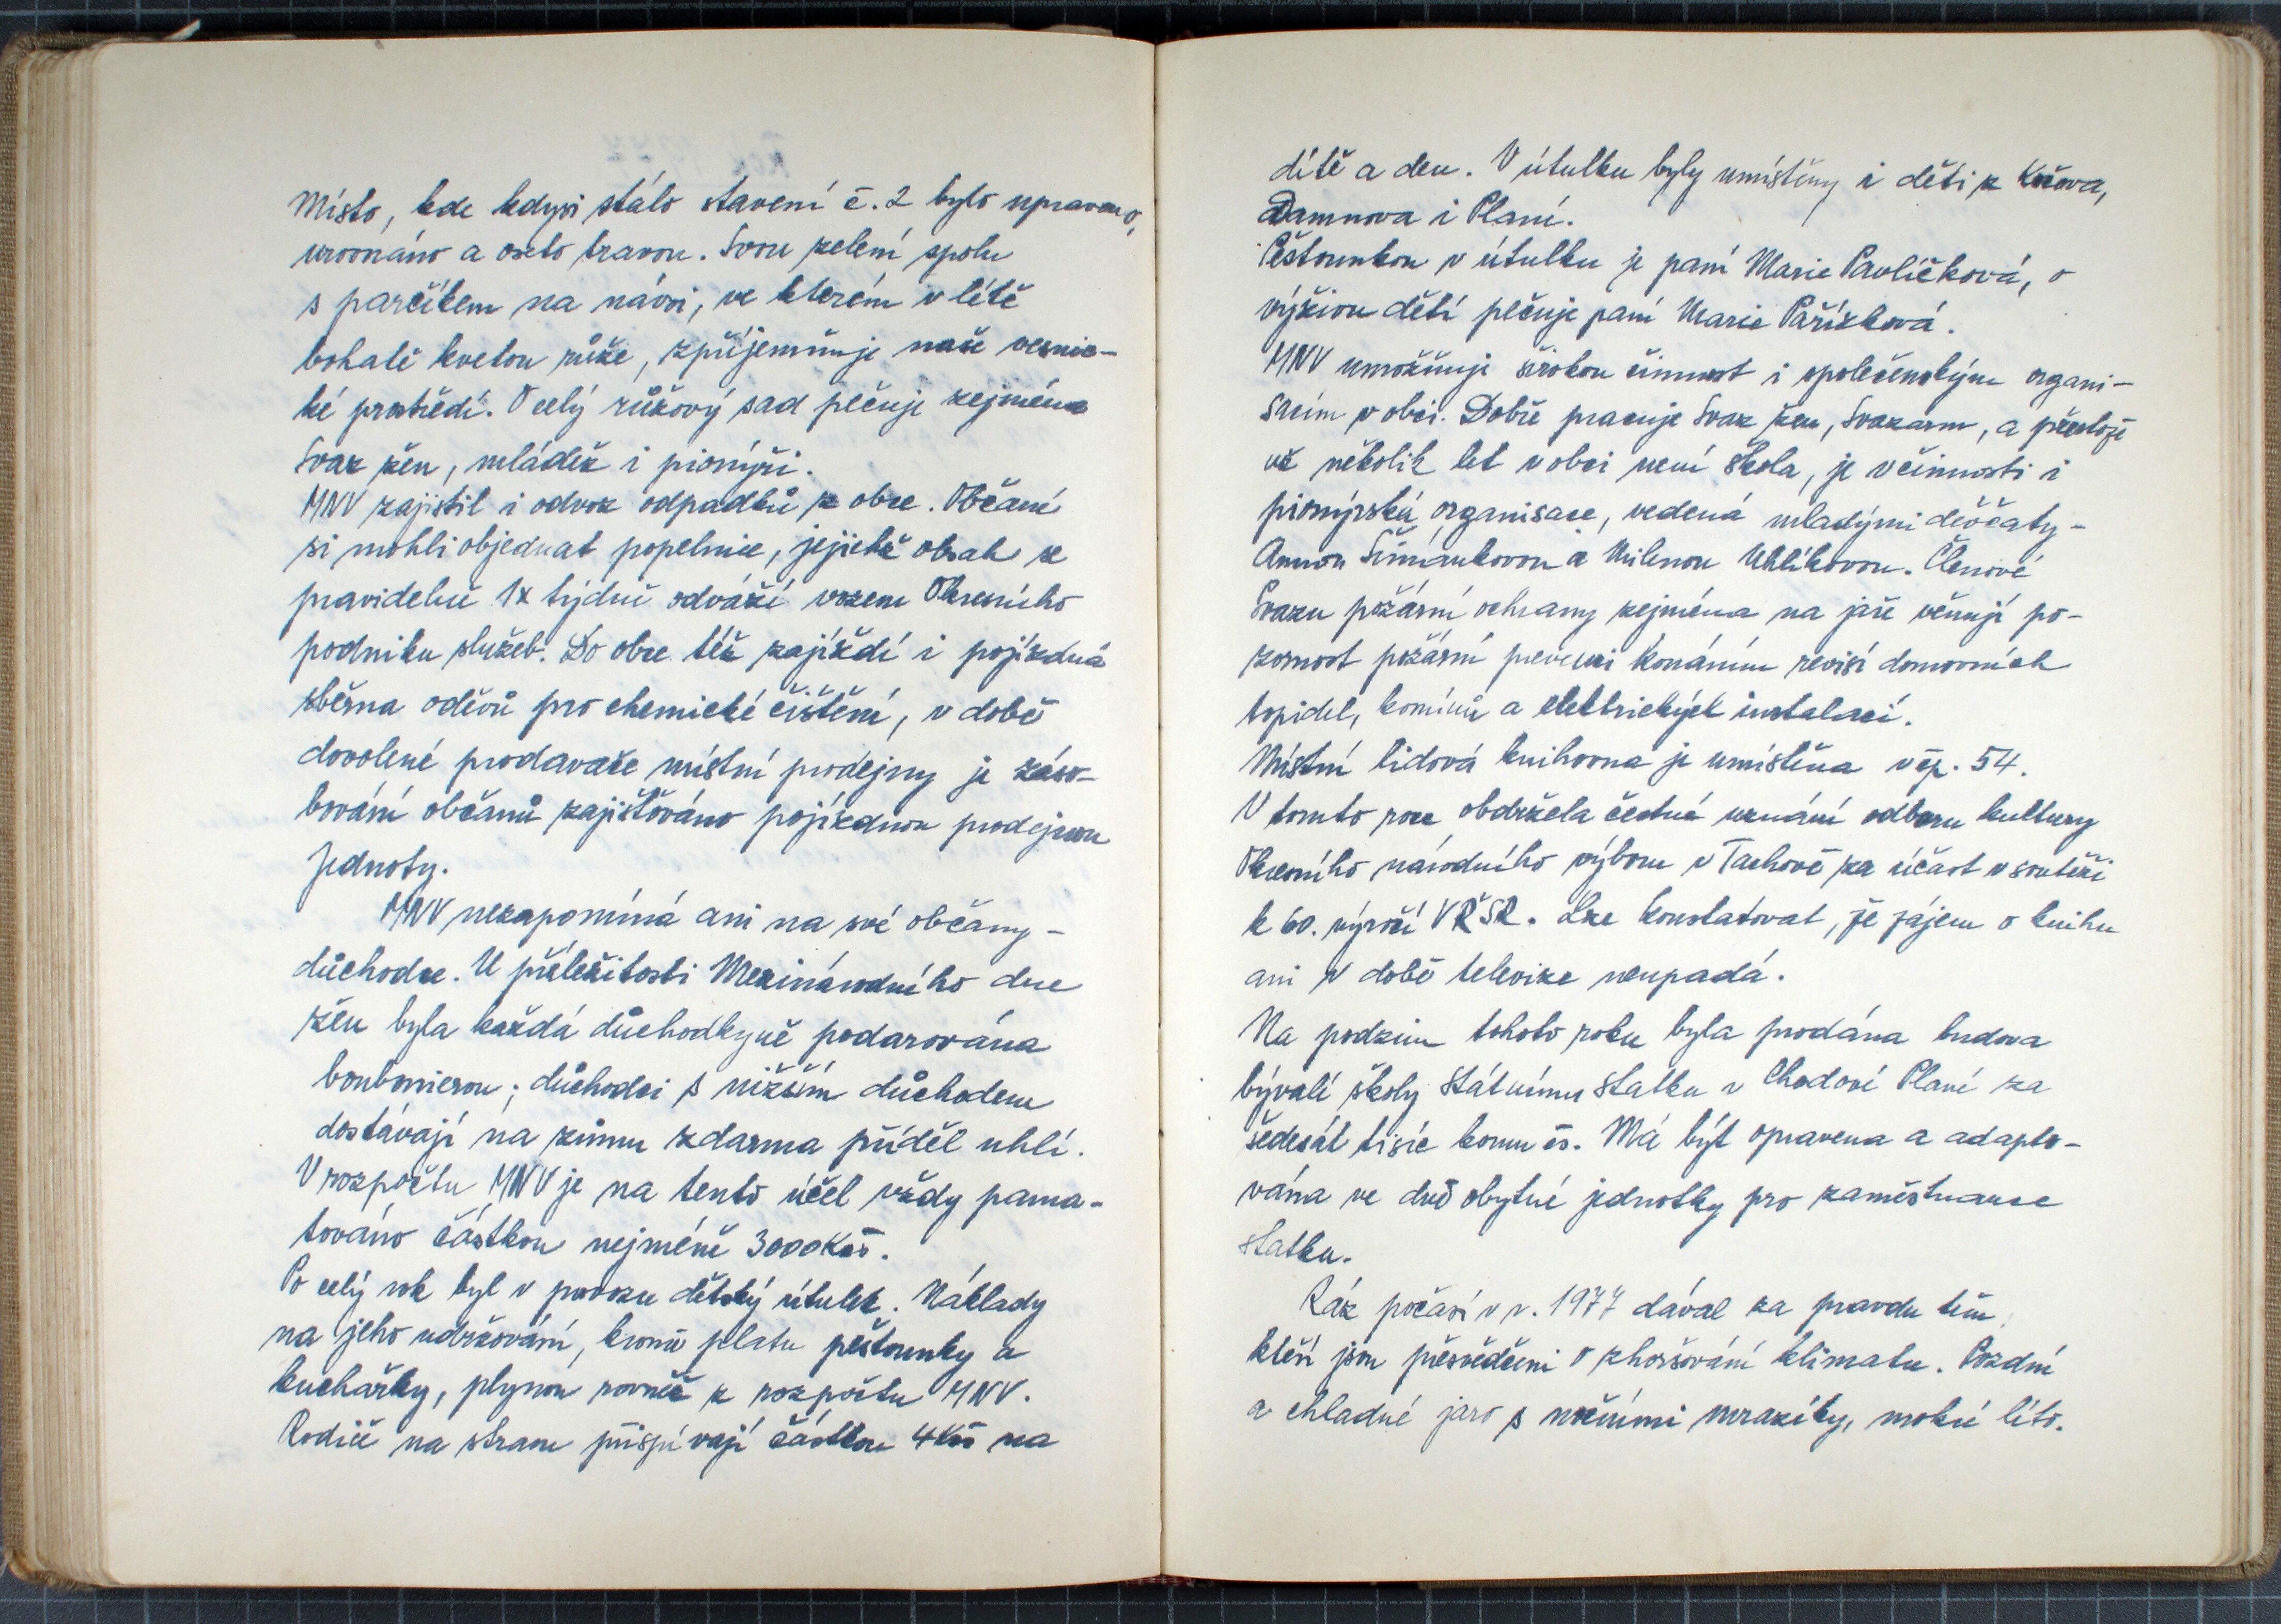 Místo, kde kdysi stálo stavení č. 2 bylo upraveno,
urovnáno a oseto travou. Svou zelení spolu
s parčíkem na návsi, ve kterém v létě
bohatě kvetou růže, zpříjemňuje naše vesnic-
ké prostředí. O celý růžový sad pečuje zejména
Svaz žen, mládež i pionýři.
MNV zajistil i odvoz odpadků z obce. Občané
si mohli objednat popelnice, jejichž obsah se
pravidelně 1x týdně odváží vozem Okresního
podniku služeb. Do obce též zajíždí i pojízdná
sběrna oděvů pro chemické čištění, v době
dovolené prodavače místní prodejny je záso-
bování občanů zajišťováno pojízdnou prodejnou
Jednoty.
MNV nezapomíná ani na své občany -
důchodce. U příležitosti Mezinárodního dne
žen byla každá důchodkyně podarována
bonbonierou; důchodci s nižším důchodem
dostávají na zimu zdarma příděl uhlí.
V rozpočtu MNV je na tento účel vždy pama-
továno částkou nejméně 3000 Kčs.
Po celý rok byl v provozu dětský útulek. Náklady
na jeho udržování, kromě platu pěstounky a
kuchařky, plynou rovněž z rozpočtu MNV.
Rodiče na stravu přispívají částkou 4 Kčs na
dítě a den. V útulku byly umístěny i děti z Kočova,
Damnova i Planí.
Pěstounkou v útulku je paní Marie Pavlíčková, o
výživu dětí pečuje paní Marie Pařízková.
MNV umožňuje širokou činnost i společenským organi-
sacím v obci. Dobře pracuje Svaz žen, Svazarm, a přestože
už několik let v obci není škola, je v činnosti i
pionýrská organisace, vedená mladými děvčaty -
Annou Šimánkovou a Milenou Uhlíkovou. Členové
Svazu požární ochrany zejména na jaře věnují po-
zornost požární prevenci konáním revisí domovních
topidel, komínů a elektrických instalací.
Místní lidová knihovna je umístěna v čp. 54.
V tomto roce obdržela čestné uznání odboru kultury
Okresního národního výboru v Tachově za účast v soutěži
k 60. výročí VŘSR. Lze konstatovat, že zájem o knihu
ani v době televize neupadá.
Na podzim tohoto roku byla prodána budova
bývalé školy Státnímu statku v Chodové Plané za
šedesát tisíc korun čs. Má být opravena a adapto-
vána ve dvě obytné jednotky pro zaměstnance
statku.
Ráz počasí v r. 1977 dával za pravdu těm,
kteří jsou přesvědčeni o zhoršování klimatu. Pozdní
a chladné jaro s nočními mrazíky, mokré léto.